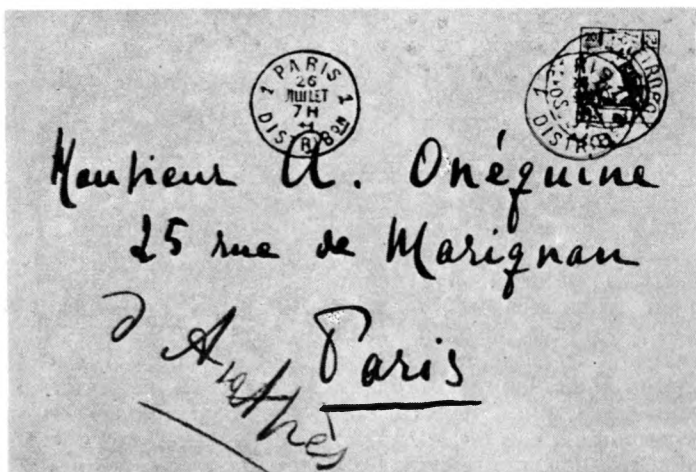 1 PARIS 1
26
JUILLET
7H
DISTRIBON
Monsieur A. Onéguine
25 rue de Marignan
Paris